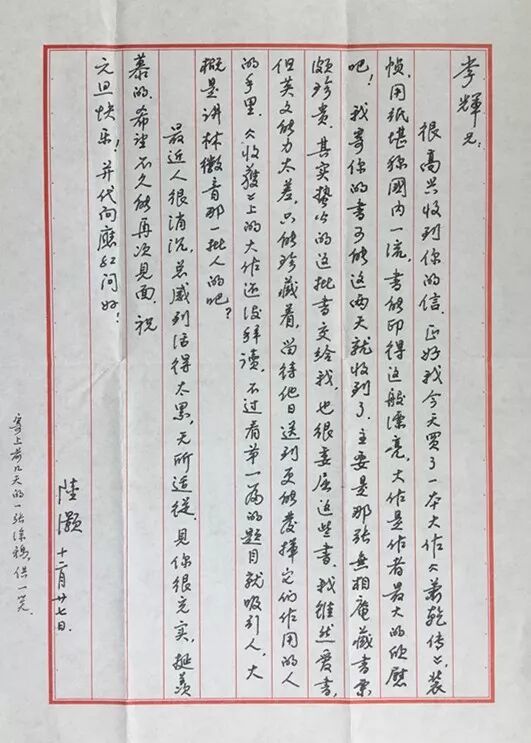 李輝兄:
很高兴收到你的信。正好我今天买了一本大作《萧乾传》,装
帧、用纸堪称國内一流,书能印得这般漂亮,大概是作者最大的欣慰
吧!我寄你的书可能这两天就收到了,主要是那张無相庵藏书票
颇珍贵。其实蛰公的这批书交给我,也很委屈这些书,我虽然爱书,
但英文能力太差,只能珍藏着,尚待他日送到更能發揮它们作用的人
的手里。《收穫》上的大作还没拜读,不过看第一篇的题目就吸引人,大
概是讲林徽音那一批人的吧?
最近人很消沉,总感到活得太累,无所适從,見你很充实,挺羡
慕的,希望不久能再次見面。祝
元旦快乐!并代向應红问好!
陸灝
十二月廿七日。
寄上前几天的一张涂鸦,供一笑。